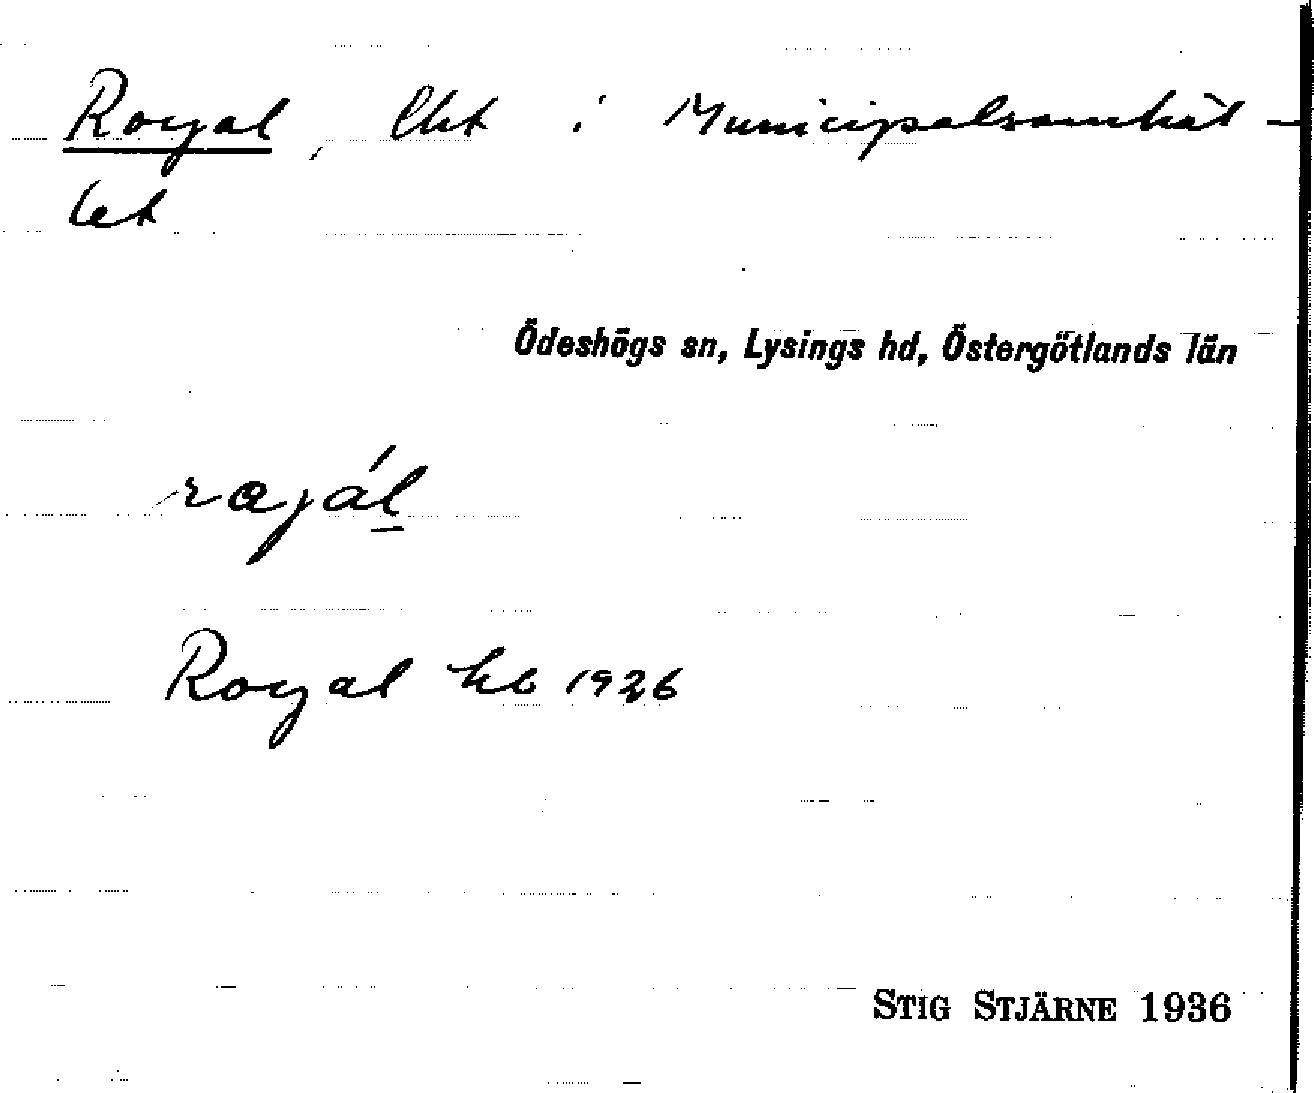 Royal, lht i Municipalsamhäl-
let
Ödeshögs sn, Lysings hd, Östergötlands län
rajál
Royal hb 1926
STIG STJÄRNE 1936